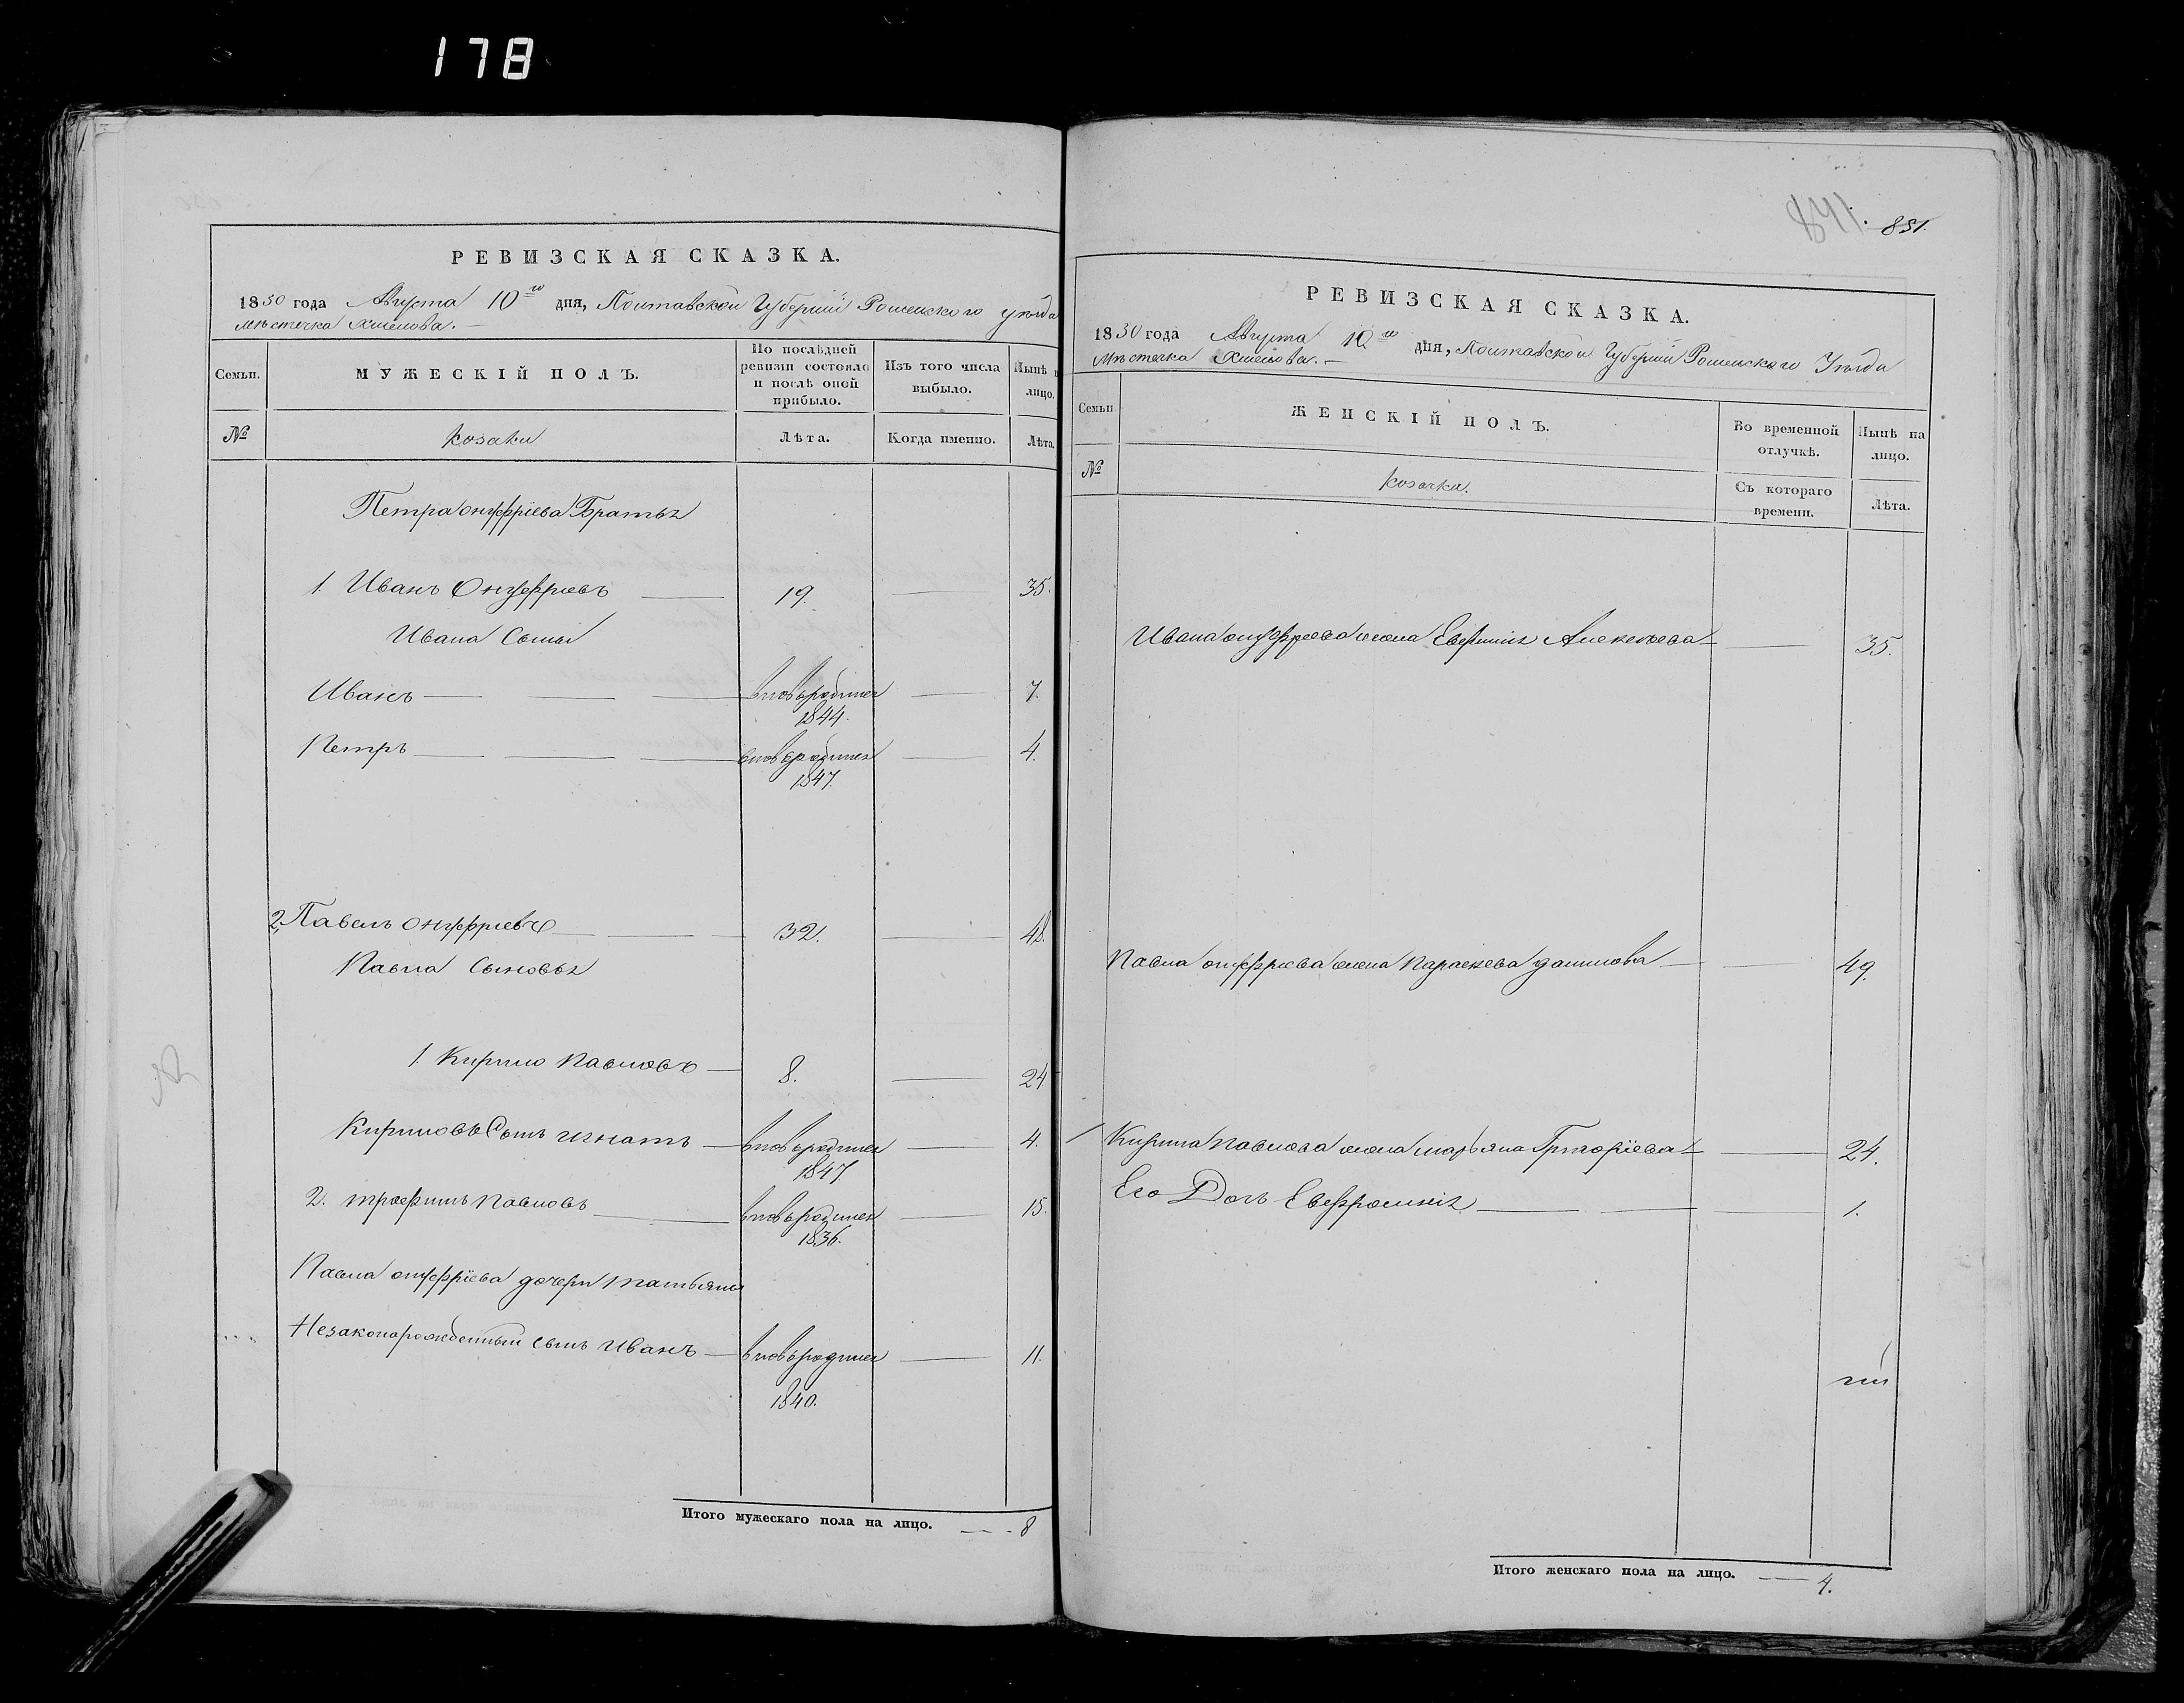 178
РЕВИЗСКАЯ СКАЗКА.
1850 года Августа 10го дня, Полтавской Губерніи Роменскаго уѣзда
Мѣстечка Хмелова.
Семьи.
МУЖЕСКІЙ ПОЛЪ.
По послѣдней ревизіи состояло и послѣ оной прибыло.
Изъ того числа выбыло.
Нынѣ н лицо.
№
козаки
Лѣта.
Когда именно.
Лѣта.
Петра онуфріева Братья
1. Иванъ Онуфріевъ — 19. — 35.
Ивана Сыны
Иванъ — вновьродился 1844. — 7.
Петръ — вновьродился 1847. — 4.
2. Павелъ онуфріевъ — 32. — 48.
Павла Сыновья
1. Кирило Павловъ — 8. — 24
Кириловъ Сынъ игнатъ — вновьродился 1847. — 4.
2. трофимъ Павловъ — вновьродился 1836. — 15.
Павла онуфріева дочери татьяны
Незаконорожденный сынъ Иванъ — вновьродился — 11.
1840.
Итого мужескаго пола на лицо. — 8
841. 851.
РЕВИЗСКАЯ СКАЗКА.
1850 года Августа 10го дня, Полтавской Губерніи Роменскаго Уѣзда
Мѣстечка Хмелова. —
Семьи
ЖЕНСКІЙ ПОЛЪ.
Во временной отлучкѣ.
Нынѣ на лицо.
№
козачки.
Съ котораго времени.
Лѣта.
Ивана онуфріева жена Евфимія Алексѣева — 35.
Павла онуфріева жена Параскева данилова — 49.
Кирила павлова жена марьяна Григоріева — 24.
Его Дочь Евфросинія — 1.
Итого женскаго пола на лицо. — 4.